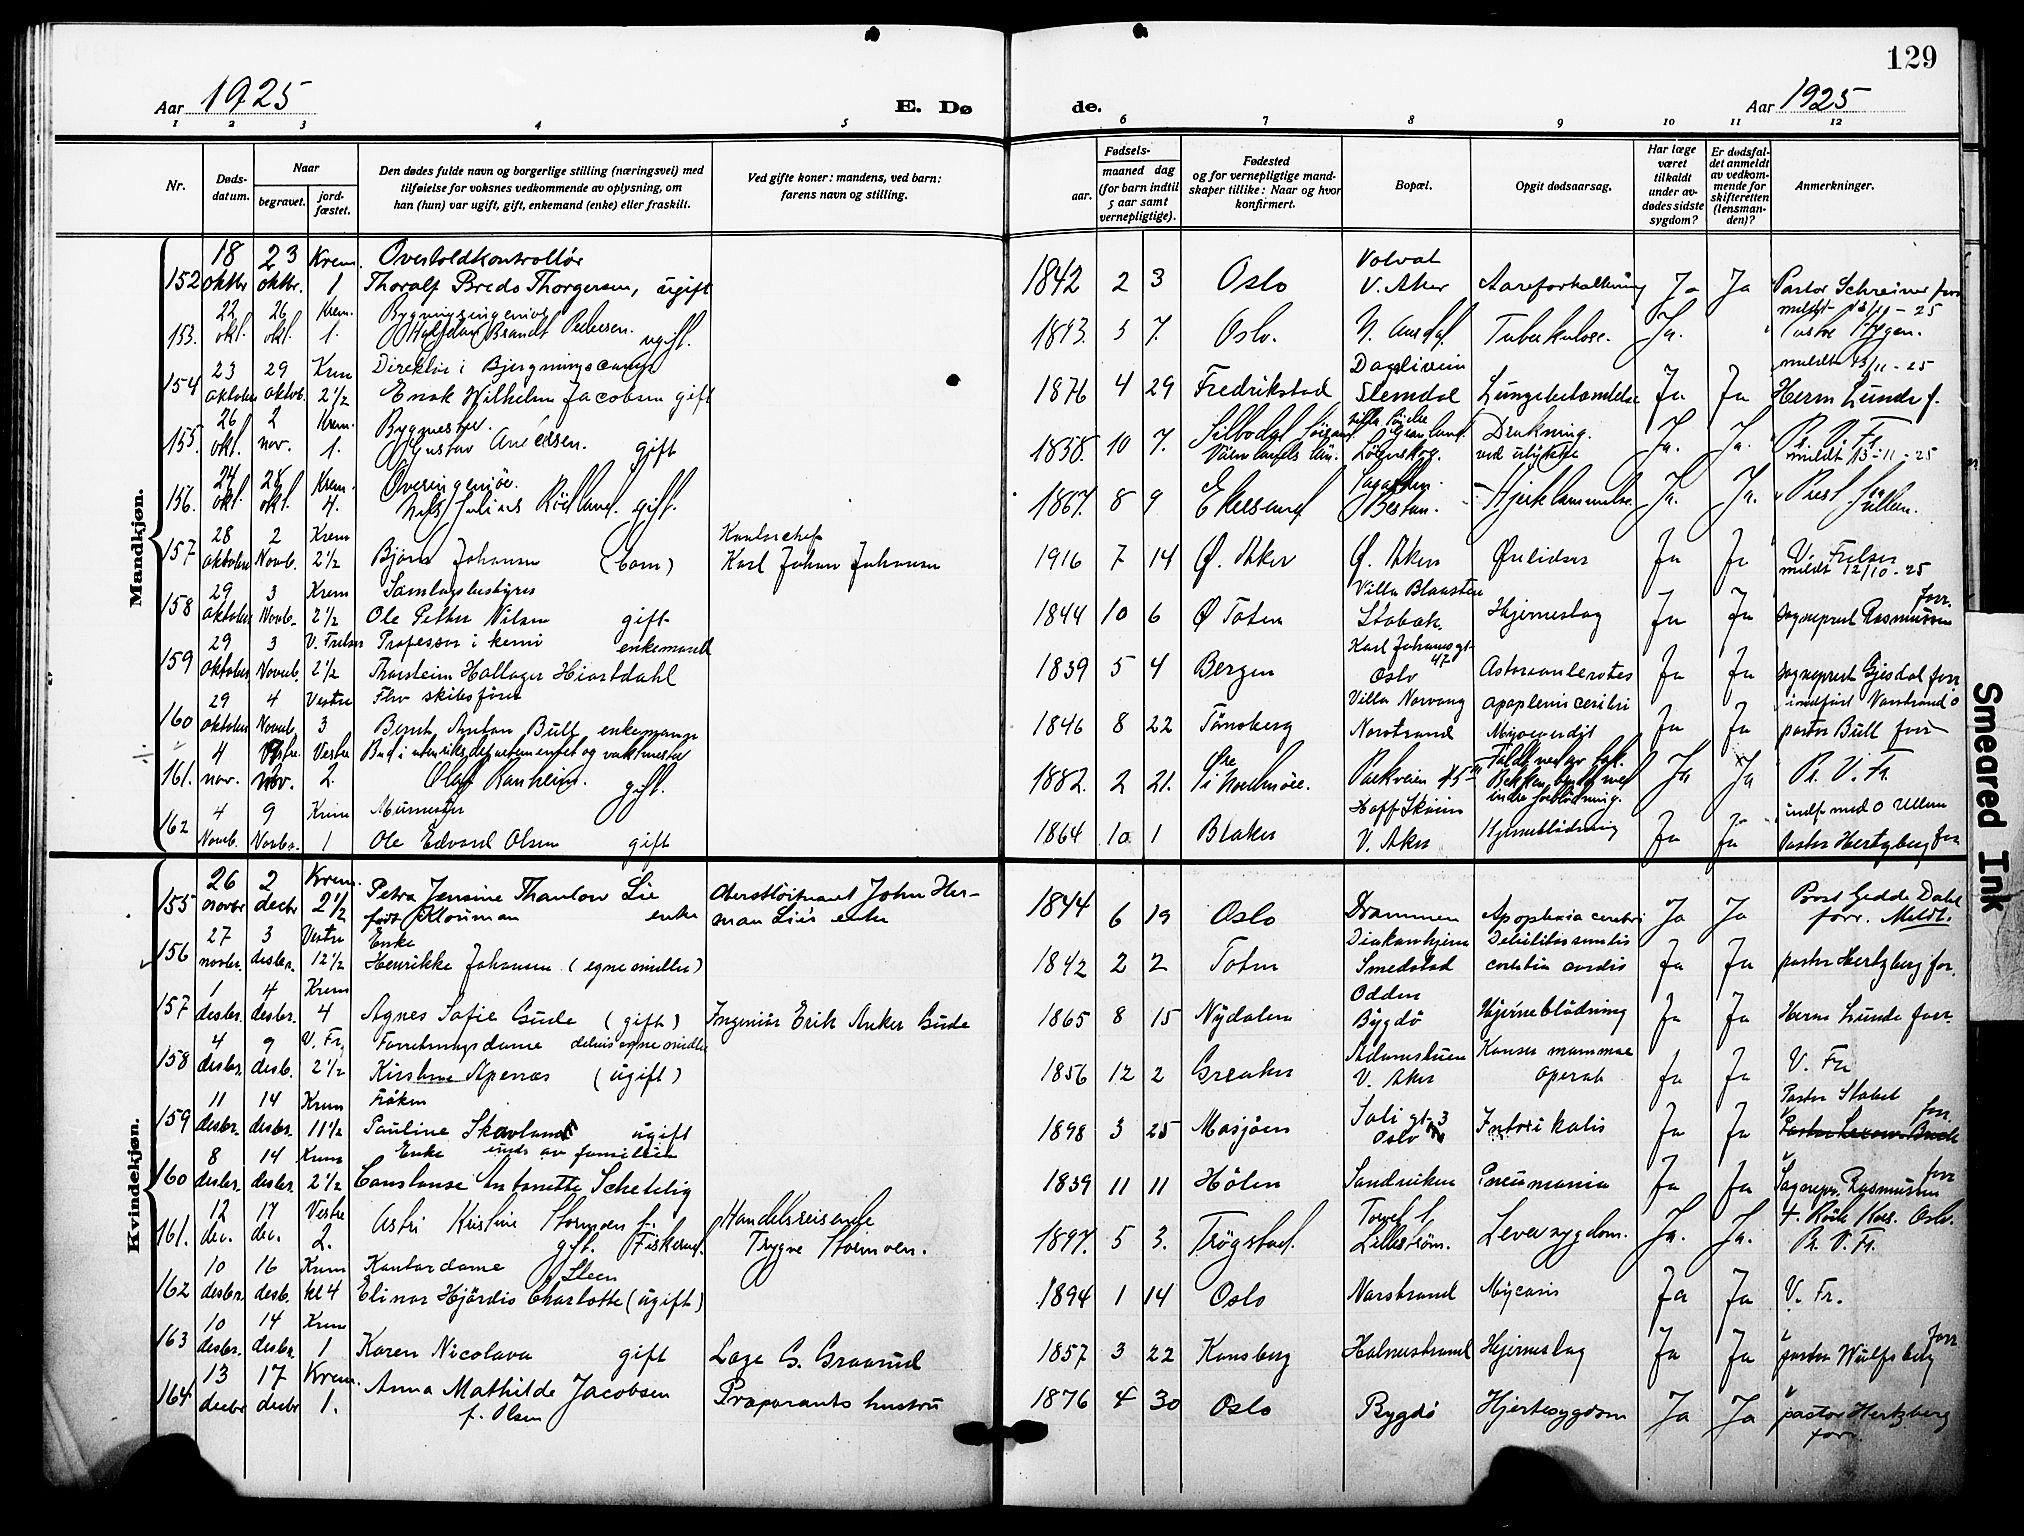 129
Aar 1925
E. Dø
de.
Aar 1925
1 2 3 4 5 6 7 8 9 10 11 12
Nr.
Døds-
datum.
Naar
begravet.
jord-
fæstet.
Den dødes fulde navn og borgerlige stilling (næringsvei) med
tilføielse for voksnes vedkommende av oplysning, om
han (hun) var ugift, gift, enkemand (enke) eller fraskilt.
Ved gifte koner: mandens, ved barn:
farens navn og stilling.
Fødsels-
aar.
maaned dag
(for barn indtil
5 aar samt
vernepligtige).
Fødested
og for vernepligtige mand-
skaper tillike: Naar og hvor
konfirmert.
Bopæl.
Opgit dødsaarsag.
Har læge
været
tilkaldt
under av-
dødes sidste
sygdom?
Er dødsfal-
det anmeldt
av vedkom-
mende for
skifteretten
(lensman-
den)?
Anmerkninger.
Mandkjøn.
18 23 Krem. Overtoldkontrollør Volvat
152 oktbr oktbr. 1 Thoralf Breda Thorgersen, ugift 1842 2 3 Oslo V. Aker Aareforkalkning Ja Ja Pastor Schreiner forr
22 26 Krem. Bygningsingeniør meldt 13/11 - 25
153. okt. okt. 1. Halfdan Brandt Pedersen. ugift. 1893. 5 7. Oslo. Tuberkulose. Ja.
23 29 Krem Direktør i Bjergningscomp meldt 13/11 - 25
154 oktober oktob. 2 1/2 Enok Wilhelm Jacobsen gift 1876 4 29 Fredrikstad Slemdal Lungebetændelse Ja Ja Herm Lunde f.
26 2 Krem. Bygmester.
155. okt. nov. 1. Gustav Andersen. gift 1858. 10 7. Drukning. Ja. Ja.
Värmlands län. ved ulykke meldt 13-11-25
24 28 Krem. Overingeniør.
156. okt. okt. 4. Nils Julius Røtland. gift. 1867. 8 9 Ekersund Bestun. Hjertelammelse Ja. Ja. Prest
28 2 Krem Kontorchef
157 oktober Novb. 2 1/2 Bjørn Johansen (barn) Karl Johan Johansen 1916 7 14 Ø. Aker Ø. Aker Ørelidelse Ja Ja V. Frelser
29 3 Krem Samlagsbestyrer Villa Blaasten meldt 12/10 - 25
158 oktober Novb. 2 1/2 Ole Petter Nilsen gift 1844 10 6 Ø Toten Stabæk Hjerneslag Ja Ja sogneprest Rasmussen forr.
29 3 V. Frelser Professor i kemi enkemand Karl Johansgt 47
159 oktober Novemb. 2 1/2 Thorstein Hallager Hiortdahl 1839 5 4 Bergen Oslo Ja Ja sogneprest Gjesdal forr
29 4 Vestre Fhv skibsfører Villa Norvang apoplexia cerebri indført Norstrand
160 oktober Novemb 3 Bernt Anton Bull enkemann 1846 8 22 Tønsberg Norstrand Ja Ja pastor Bull forr
4 Vestre. Vestre Bud i utenriksdepartementet og vaktmester
161. nov. nov. 2. Olaf Ranheim. gift. 1882. 2 21. Parkveien 45 Bekkenbrudd med Ja Ja Pr. V. Fr.
indre forblødning.
4 9 Krem Murmester Hoff Skøien indf. med Ullern
162 Novb. Novbr. 1 Ole Edvard Olsen gift 1864 10 1 Blaker V. Aker Hjerneblødning Ja Ja Pastor Hertzberg forr
Kvindekjøn.
26 2 Krem. Petra Jensine Thaulow Lie Oberstløitnant John Her- Prost Gedde Dahl
155 novbr decbr 2 1/2 født Klouman enke man Lie's enke 1844 6 19 Oslo Drammen Apoplexia cerebri Ja Ja forr. Meldt.
27 3 Vestre Enke Diakonhjem Debilitas senilis
156 novbr. desbr. 12 1/2 Henrikke Johansen (egne midler) 1842 2 2 Toten Smedstad cordis Ja Ja pastor Hertzberg for.
1 4 Krem Odden
157 desbr. desbr. 4 Agnes Sofie Gude (gift) Ingeniør Erik Anker Gude 1865 8 15 Nydalen Bygdø Hjerneblødning Ja Ja Herm Lunde forr.
4 9 V. Fr. Forretningsdame delvis egne midler Adamstuen Kanser mammae
158 desbr. desb. 2 1/2 Kirstine Apenæs (ugift) 1856 12 2 Greaker V. Aker operat Ja Ja V. Fr
11 14 Krem Frøken Pastor Stabel forr
159 desbr. desbr. 11 1/2 Pauline Skavland ugift 1898 3 25 Mosjøen Oslo Ja Ja
8 14 Krem Enke unds av familien
160 desbr. desbr. 2 1/2 Constanse Antonette Schetelig 1839 11 11 Hølen Sandviken Pneumonia Ja Ja Sognepr. Rasmussen forr
12 17 Vestre Astri Kristine Stormoen f. Handelsreisende Torvet 1 f. Røde Kors. Oslo.
161. dec. dec. 2. gift. Fiskerud. Trygve Stormoen. 1897. 5 3. Trøgstad. Lillestrøm. Leversygdom. Ja. Ja. Pr. V. Fr.
10 16 Krem Kontordame Steen
162 desbr. desb. kl 4 Elinor Hjørdis Charlotte (ugift) 1894 1 14 Oslo Norstrand Ja Ja V. Fr.
10 14 Krem
163 desbr. desbr. 1 Karen Nicolava gift Lage G. Graarud 1857 3 22 Konsberg Holmestrand Hjerneslag Ja Ja pastor Wulfsberg forr
13 17 Krem. Anna Mathilde Jacobsen
164 decbr decbr 1. f. Olsen Præparants hustru 1876 4 30 Oslo Bygdø Hjertesygdom Ja Ja pastor Hertzberg
forr.
Smeared Ink